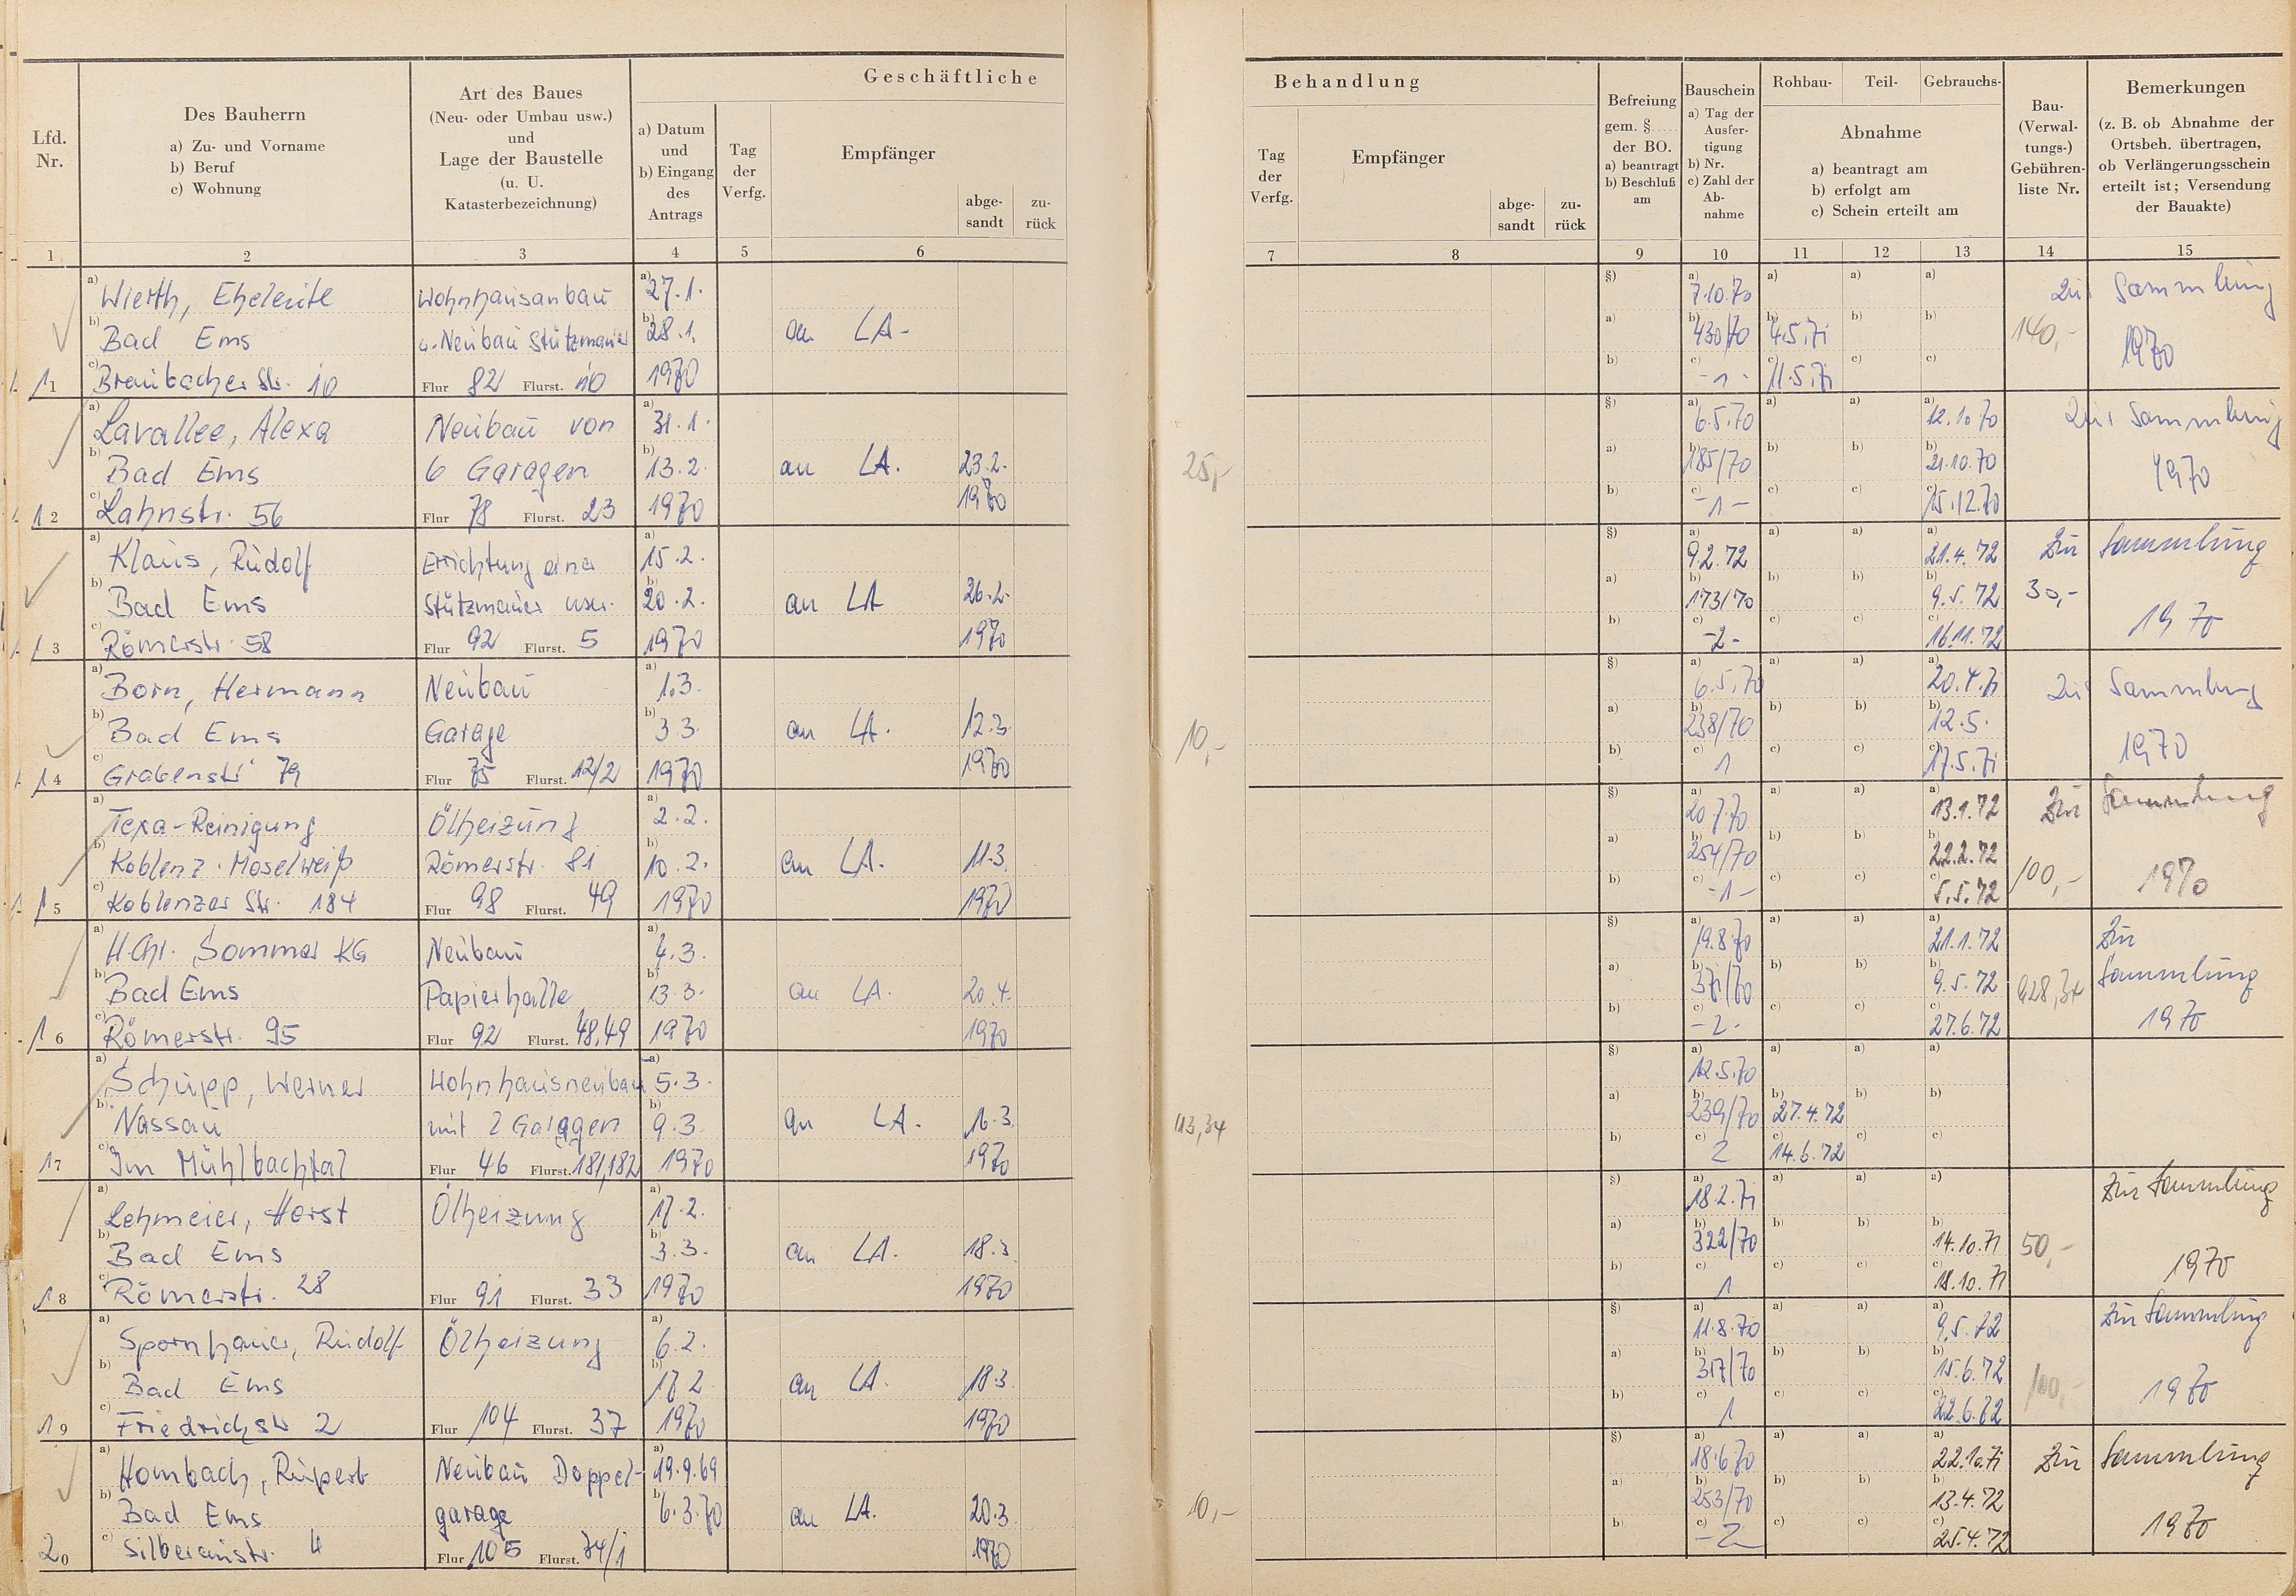 Geschäftliche
Behandlung
Lfd.
Nr.
Des Bauherrn
a) Zu- und Vorname
b) Beruf
c) Wohnung
Art des Baues
(Neu- oder Umbau usw.)
und
Lage der Baustelle
(u. U.
Katasterbezeichnung)
a) Datum
und
b) Eingang
des
Antrags
Tag
der
Verfg.
Empfänger
abge-
sandt
zu-
rück
Tag
der
Verfg.
Empfänger
abge-
sandt
zu-
rück
Befreiung
gem. §.....
der BO.
a) beantragt
b) Beschluß
am
Bauschein
a) Tag der
Ausfer-
tigung
b) Nr.
c) Zahl der
Ab-
nahme
Rohbau-
Teil-
Gebrauchs-
Abnahme
a) beantragt am
b) erfolgt am
c) Schein erteilt am
Bau-
(Verwal-
tungs-)
Gebühren-
liste Nr.
Bemerkungen
(z. B. ob Abnahme der
Ortsbeh. übertragen,
ob Verlängerungsschein
erteilt ist; Versendung
der Bauakte)
1 2 3 4 5 6 7 8 9 10 11 12 13 14 15
a) Wierth, Eheleute Wohnhausanbau a) 27.1. §) a) 7.10.70 a) a) a) Zur Sammlung
b) Bad Ems u. Neubau Stützmauer b) 28.1. an LA- a) b) 430/70 b) 4.5.71 b) b) 140,- 1970
11 c) Braubacher Str. 10 Flur 82 Flurst. 10 1970 b) c) -1- c) 11.5.71 c) c)
a) Lavallee, Alexa Neubau von a) 31.1. §) a) 6.5.70 a) a) a) 12.10.70 Zur Sammlung
b) Bad Ems 6 Garagen b) 13.2. an LA. 23.2. 25,- a) b) 185/70 b) b) b) 21.10.70 1970
12 c) Lahnstr. 56 Flur 78 Flurst. 23 1970 1970 b) c) -1- c) c) c) 15.12.70
a) Klaus, Rudolf Errichtung einer a) 15.2. §) a) 9.2.72 a) a) a) 21.4.72 Zur Sammlung
b) Bad Ems Stützmauer usw. b) 20.2. an LA 26.2. a) b) 173/70 b) b) b) 9.5.72 30,-
13 c) Römerstr. 58 Flur 92 Flurst. 5 1970 1970 b) c) -2- c) c) c) 16.11.72 1970
a) Born, Hermann Neubau a) 1.3. §) a) 6.5.70 a) a) a) 20.4.71 Zur Sammlung
b) Bad Ems Garage b) 3.3. an LA. 12.3. 10,- a) b) 238/70 b) b) b) 12.5.
14 c) Grabenstr. 79 Flur 75 Flurst. 12/2 1970 1970 b) c) 1 c) c) c) 17.5.71 1970
a) Texa-Reinigung Ölheizung a) 2.2. §) a) 20.7.70 a) a) a) 13.1.72 Zur Sammlung
b) Koblenz-Moselweiß Römerstr. 81 b) 10.2. an LA. 11.3. a) b) 254/70 b) b) b) 22.2.72
15 c) Koblenzer Str. 184 Flur 98 Flurst. 49 1970 1970 b) c) -1- c) c) c) 5.5.72 100,- 1970
a) H.Chr. Sommer KG Neubau a) 4.3. §) a) 19.8.70 a) a) a) 21.1.72 Zur
b) Bad Ems Papierhalle b) 13.3. an LA. 20.4. a) b) 371/70 b) b) b) 9.5.72 928,34 Sammlung
16 c) Römerstr. 95 Flur 92 Flurst. 48,49 1970 1970 b) c) -2- c) c) c) 27.6.72 1970
a) Schupp, Werner Wohnhausneubau a) 5.3. §) a) 12.5.70 a) a) a)
b) Nassau mit 2 Garagen b) 9.3. an LA. 16.3. 113,34 a) b) 239/70 b) 27.4.72 b) b)
17 c) Im Mühlbachtal Flur 46 Flurst. 181,182 1970 1970 b) c) 2 c) 14.6.72 c) c)
a) Lehmeier, Horst Ölheizung a) 17.2. §) a) 18.2.71 a) a) a) Zur Sammlung
b) Bad Ems b) 3.3. an LA. 18.3. a) b) 322/70 b) b) b) 14.10.71 50,-
18 c) Römerstr. 28 Flur 91 Flurst. 33 1970 1970 b) c) 1 c) c) c) 18.10.71 1970
a) Spornhauer, Rudolf Ölheizung a) 6.2. §) a) 11.8.70 a) a) a) 9.5.72 Zur Sammlung
b) Bad Ems b) 17.2. an LA. 18.3. a) b) 317/70 b) b) b) 15.6.72 100,-
19 c) Friedrichstr. 2 Flur 104 Flurst. 37 1970 1970 b) c) 1 c) c) c) 22.6.72 1970
a) Hombach, Rupert Neubau Doppel- a) 19.9.69 §) a) 18.6.70 a) a) a) 22.10.71 Zur Sammlung
b) Bad Ems garage b) 6.3.70 an LA. 20.3. 10,- a) b) 253/70 b) b) b) 13.4.72
20 c) Silberaustr. 4 Flur 105 Flurst. 74/1 1970 b) c) -2 c) c) c) 25.4.72 1970